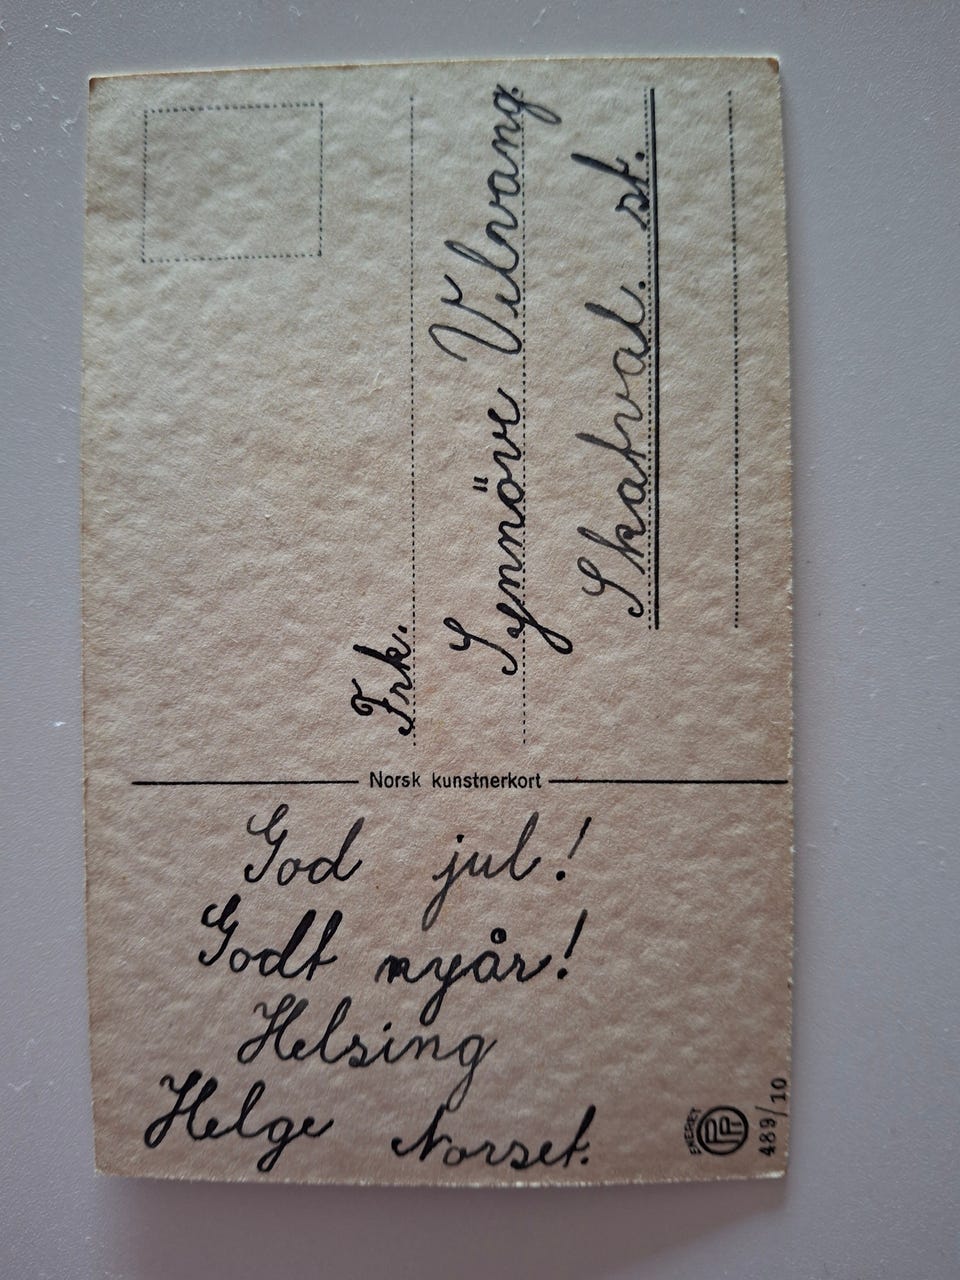 God jul!
Godt nyår!
Helsing
Helge Norset.
Norsk kunstnerkort
Frk.
Synnöve Velvang.
Skatval. st.
ENERET
489/10